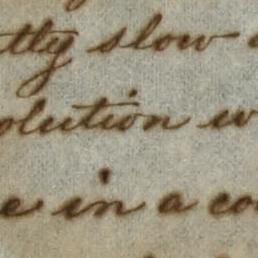 tly slow
olution w
e in a co